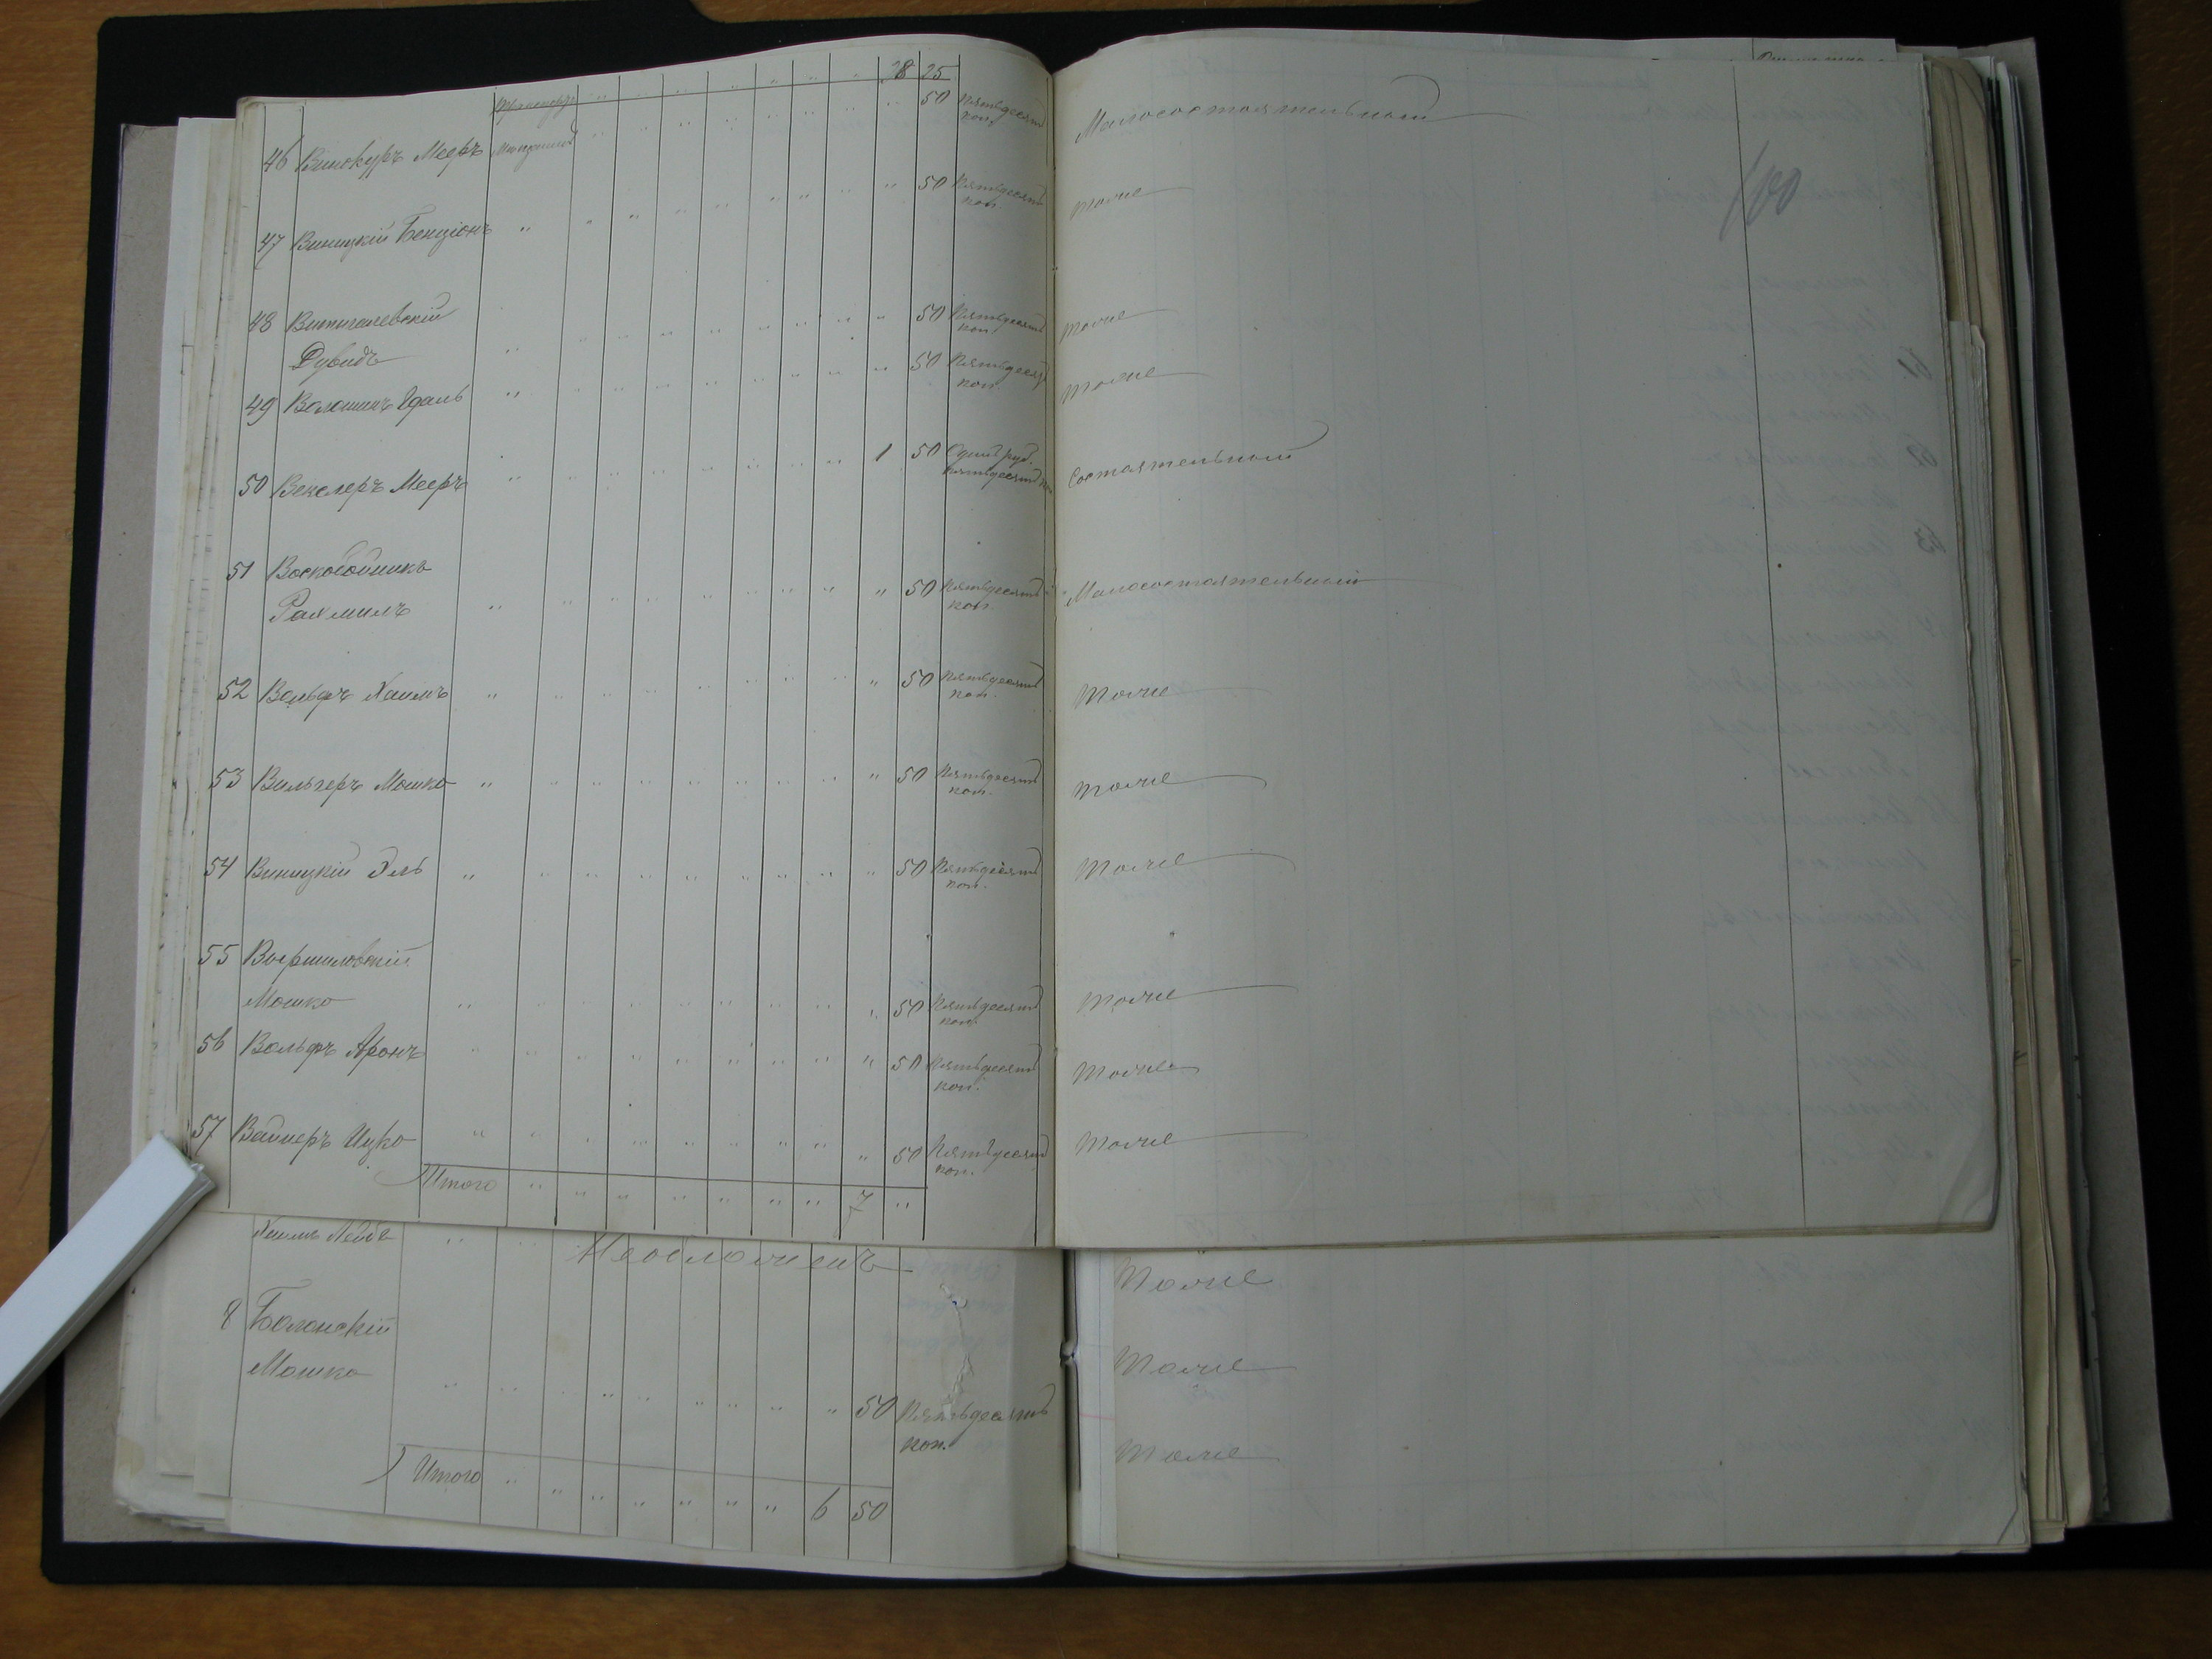 Транспортъ " " " " " " " 28 25
46 Винокуръ Мееръ Мещанинъ " " " " " " " " 50 Пятьдесятъ коп. Малосостоятельный
47 Виницкій Бенціонъ " " " " " " " " " 50 Пятьдесятъ коп. Тоже
48 Витигалевскій
Дувидъ " " " " " " " " " 50 Пятьдесятъ коп. Тоже
49 Волошинъ Гдаль " " " " " " " " " 50 Пятьдесятъ коп. Тоже
50 Векслеръ Мееръ " " " " " " " " 1 50 Одинъ руб. пятьдесятъ коп. Состоятельный
51 Воскобойникъ
Рахмилъ " " " " " " " " " 50 Пятьдесятъ коп. Малосостоятельный
52 Вольфъ Хаимъ " " " " " " " " " 50 Пятьдесятъ коп. Тоже
53 Вильгеръ Мошко " " " " " " " " " 50 Пятьдесятъ коп. Тоже
54 Виницкій Эль " " " " " " " " " 50 Пятьдесятъ коп. Тоже
55
Мошко " " " " " " " " " 50 Пятьдесятъ коп. Тоже
56 Вольфъ Аронъ " " " " " " " " " 50 Пятьдесятъ коп. Тоже
57 Вайнеръ Ицко " " " " " " " " " 50 Пятьдесятъ коп. Тоже
Итого " " " " " " " 7 "
Хаимъ Лейба " " Необложенъ Тоже
8 Болонскій
Мошко " " " " " " " " 50 Пятьдесятъ коп. Тоже
Тоже
Итого " " " " " " " 6 50
100